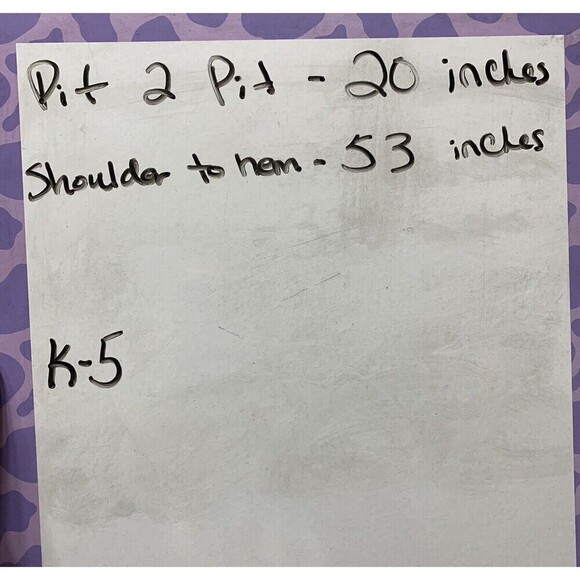 Pit 2 Pit - 20 inches
Shoulder to hem - 53 inches
K-5